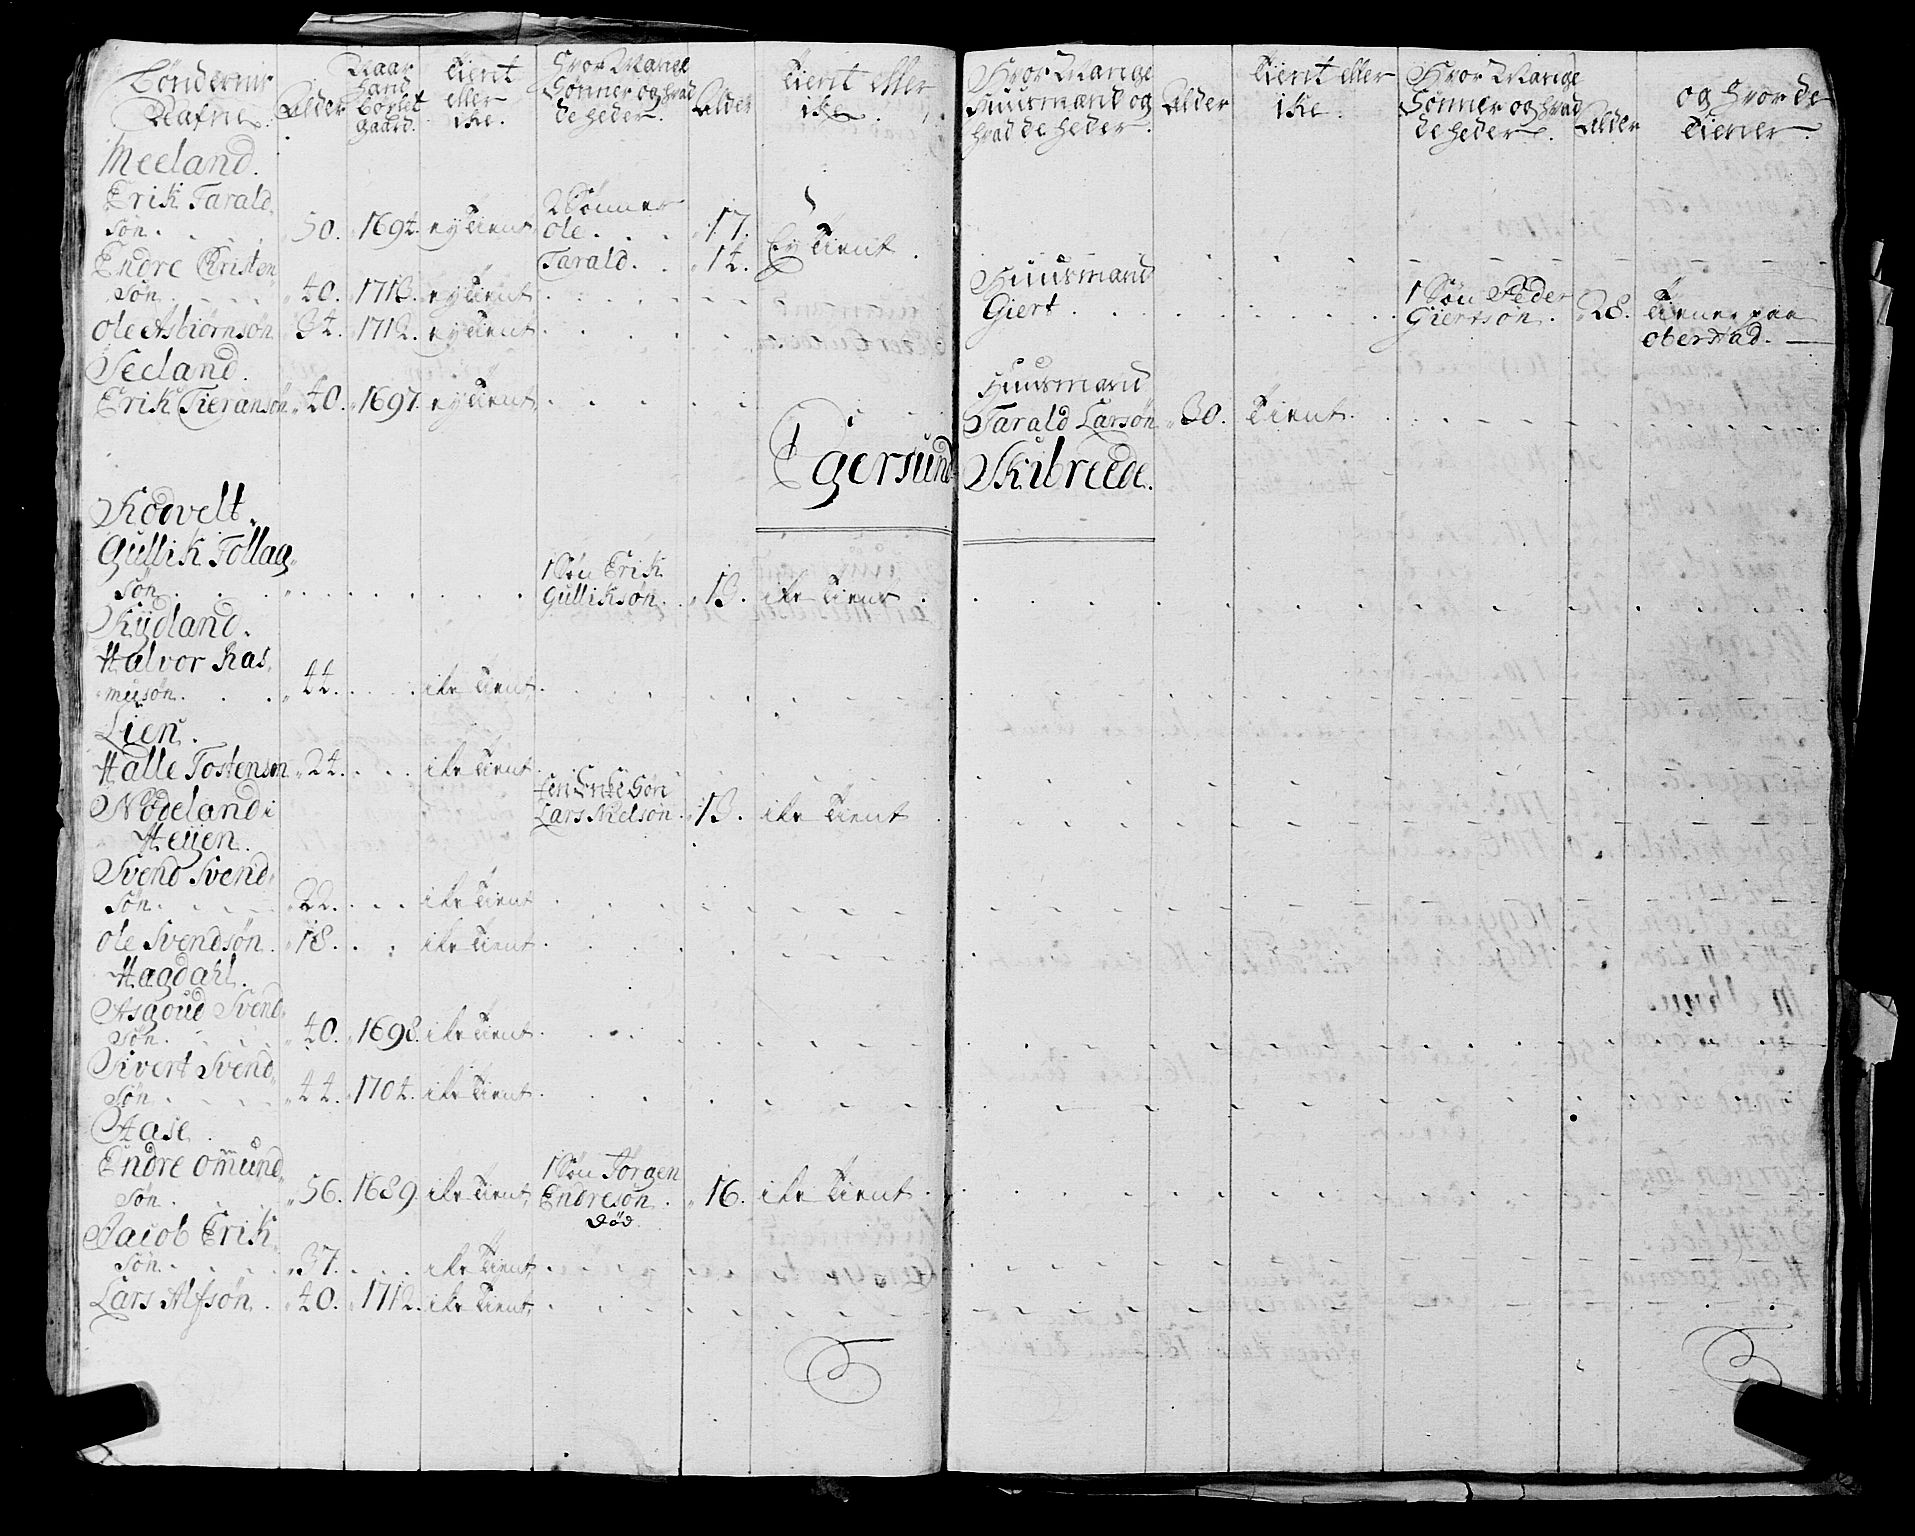 Bøndernis
Nafne.
Alder
Naar
hand
boxlet
gaard.
tient
eller
ike.
Hvor Mange
Sønner og hvad
de heder.
Alder
tient eller
ike.
Hvor Mange
Huusmænd og
hvad de heder.
Alder
tient eller
ike.
Hvor Mange
Sønner og hvad
de heder.
Alder
og hvor de
tiener.
Meeland.
Erik Tarald
søn. 50. 1694. ey tient
2 Sønner
ole. 17.
Tarald. 14. Ey tient
Endre Kristen
søn. 40. 1713. ey tient
Huusmand
Giert.
1 Søn Peder
Giertsøn. 28. tiener paa
oberstad.
Ole Asbiørnsøn 34. 1712. ey tient
Seeland.
Erik Tieransøn 40. 1697. ey tient
Huusmand
Tarald Larsøn 30. tient.
Egersund Skibreede.
Kodvelt.
Gullik Tollag
søn.
1 Søn Erik
Gulliksøn. 13. ike tient
Kydland.
Halvor Ras
musøn. 44. ike tient
Lien.
Halle Tostensøn 24. ike tient
Nodeland i
Heyen.
en Enke Søn
Lars Nielsøn. 13. ike tient
Svend Svend
søn. 22. ike tient
Ole Svendsøn. 18. ike tient
Hagdahl.
Asgoud Svend
søn. 40. 1698. ike tient
Sivert Svend
søn. 44. 1704. ike tient
Aase.
Endre omund
søn. 56. 1689. ike tient
1 Søn Jørgen
Endresøn. 16. ike tient
død
Jacob Erik
søn. 37. ike tient
Lars Alfsøn. 40. 1712. ike tient